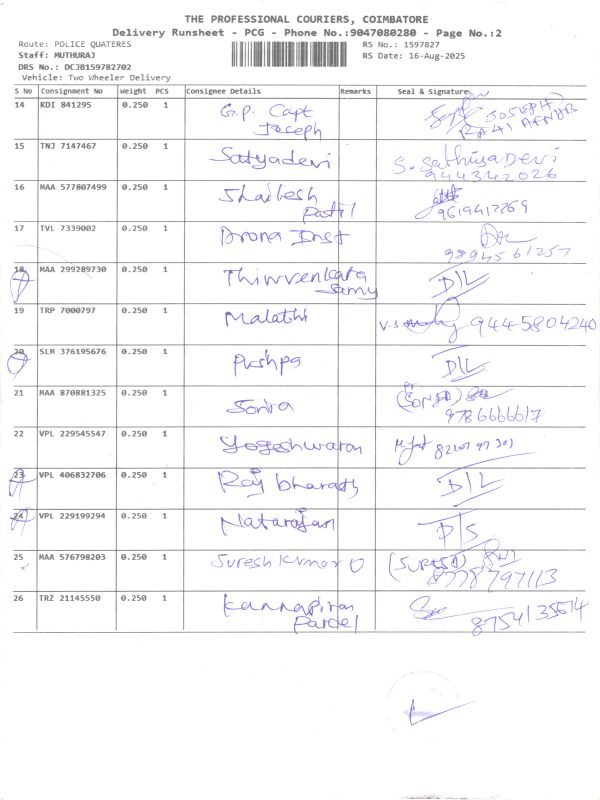 THE PROFESSIONAL COURIERS, COIMBATORE
Delivery Runsheet - PCG - Phone No.:9047080280 - Page No.:2
Route: POLICE QUATERES
RS No.: 1597827
Staff: MUTHURAJ
RS Date: 16-Aug-2025
DRS No.: DCJB159782702
Vehicle: Two Wheeler Delivery
S No Consignment No Weight PCS Consignee Details Remarks Seal & Signature
14 KDI 841295 0.250 1 G.P. Capt JOSEPH
Joseph
15 TNJ 7147467 0.250 1 Satyadevi S. Sathiya Devi
944342026
16 MAA 577807499 0.250 1 Shailesh
Patil 9619417269
17 TVL 7339002 0.250 1 Drona Inst
9894561257
18 MAA 299289730 0.250 1 Thiruvenkata D/L
Samy
19 TRP 7000797 0.250 1 Malathi V.S 9445804240
20 SLM 376195676 0.250 1 Pushpa D/L
21 MAA 870881325 0.250 1 Sonia (SONIA)
9786666617
22 VPL 229545547 0.250 1 Yogeshwaran
23 VPL 406832706 0.250 1 Raj bharath D/L
24 VPL 229199294 0.250 1 Natarajan D/S
25 MAA 576798203 0.250 1 Suresh Kumar (SURESH)
8778797113
26 TRZ 21145550 0.250 1 Kannapiran
Parcel 8754135614